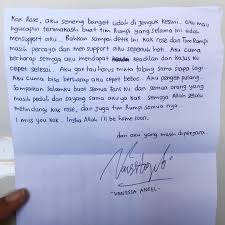 Kak Rose, aku seneng banget udah di jenguk kesini. Aku mau
ngucapin terimakasih buat tim Rumpi yang selama ini udah
mensupport aku. Bahkan sampai detik ini kak rose dan Tim Rumpi
masih percaya dan mensupport aku sepenuh hati. Aku cuma
berharap semoga aku mendapat keadilan dan kasus ku
cepet selesai. Aku ga tau harus minta tolong sama siapa lagi.
Aku cuma bisa berharap aku cepet bebas. Aku pengen pulang.
Sampaikan salamku buat semua fans ku dan semua orang yang
masih peduli dan sayang sama aku ya kak. Semoga Allah selalu
melindungi kak rose, dan juga tim Rumpi semua nya.
I miss you kak. Insha Allah I'll be home soon.
dari aku yang masih dipenjara
"VANESSA ANGEL"